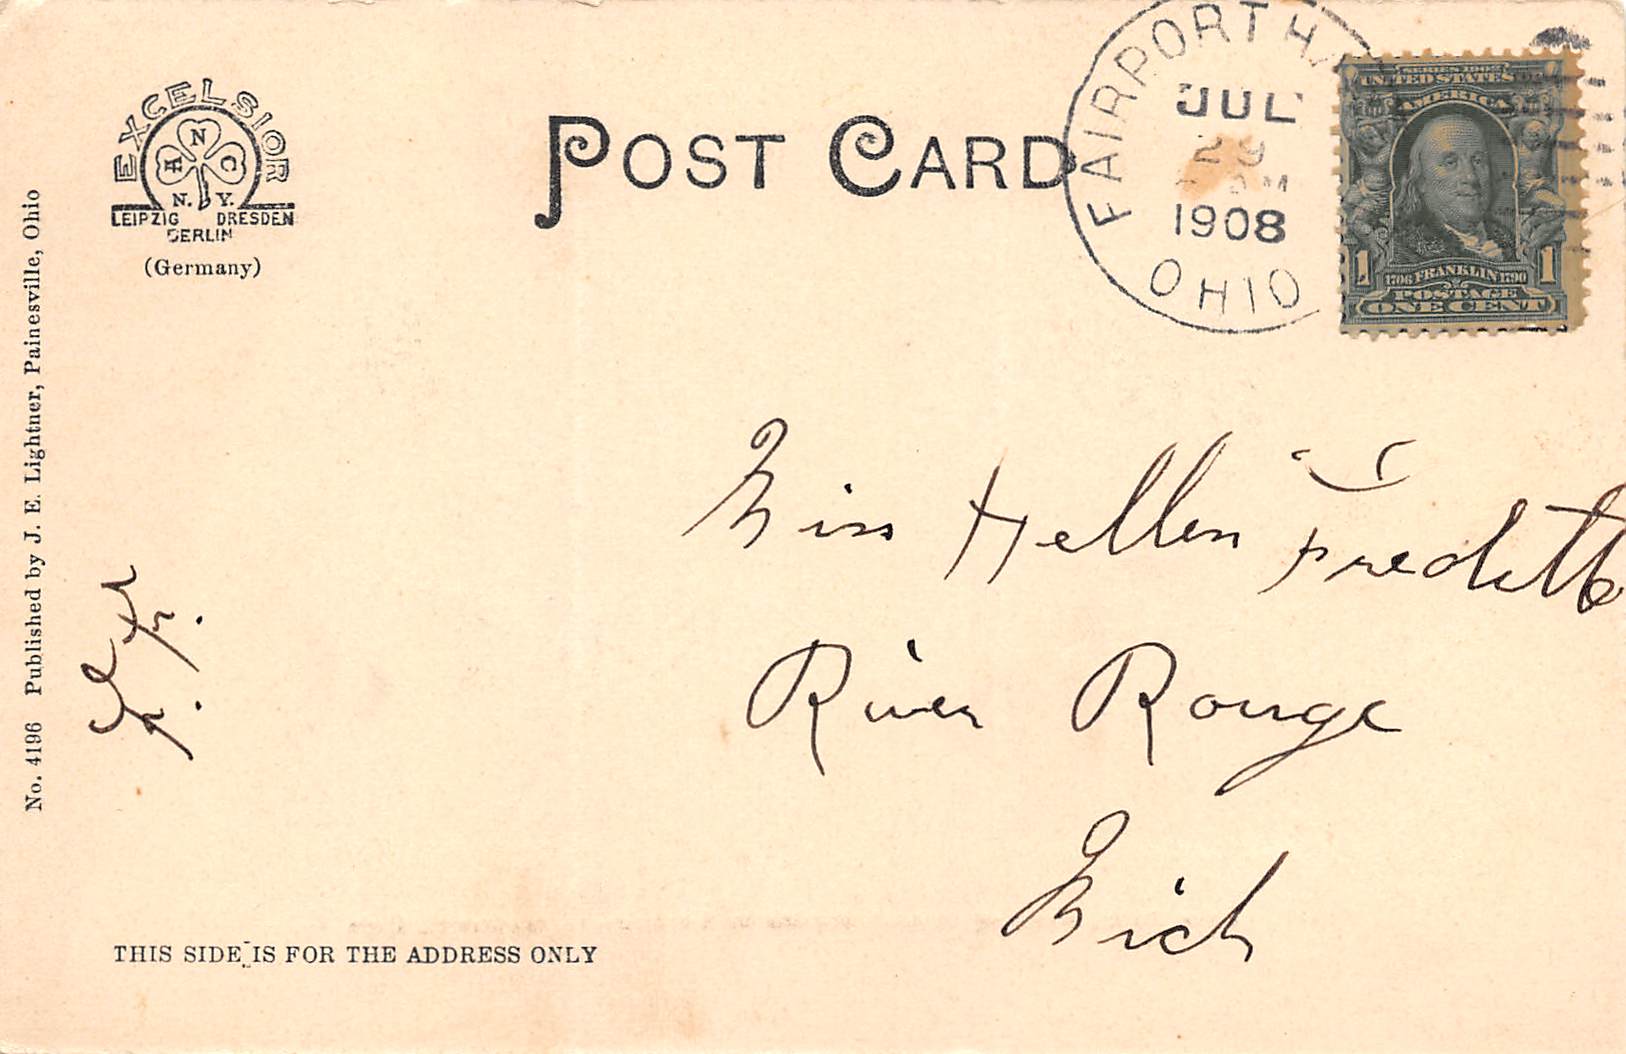 EXCELSIOR
N
H C
N. Y.
LEIPZIG DRESDEN
BERLIN
(Germany)
POST CARD
FAIRPORT
JUL
29
1908
OHIO
SERIES 1902
UNITED STATES OF
AMERICA
1 1706 FRANKLIN 1790 1
POSTAGE
ONE CENT
No. 4196 Published by J. E. Lightner, Painesville, Ohio
Miss Hellen Fredette
River Rouge
Mich
THIS SIDE IS FOR THE ADDRESS ONLY